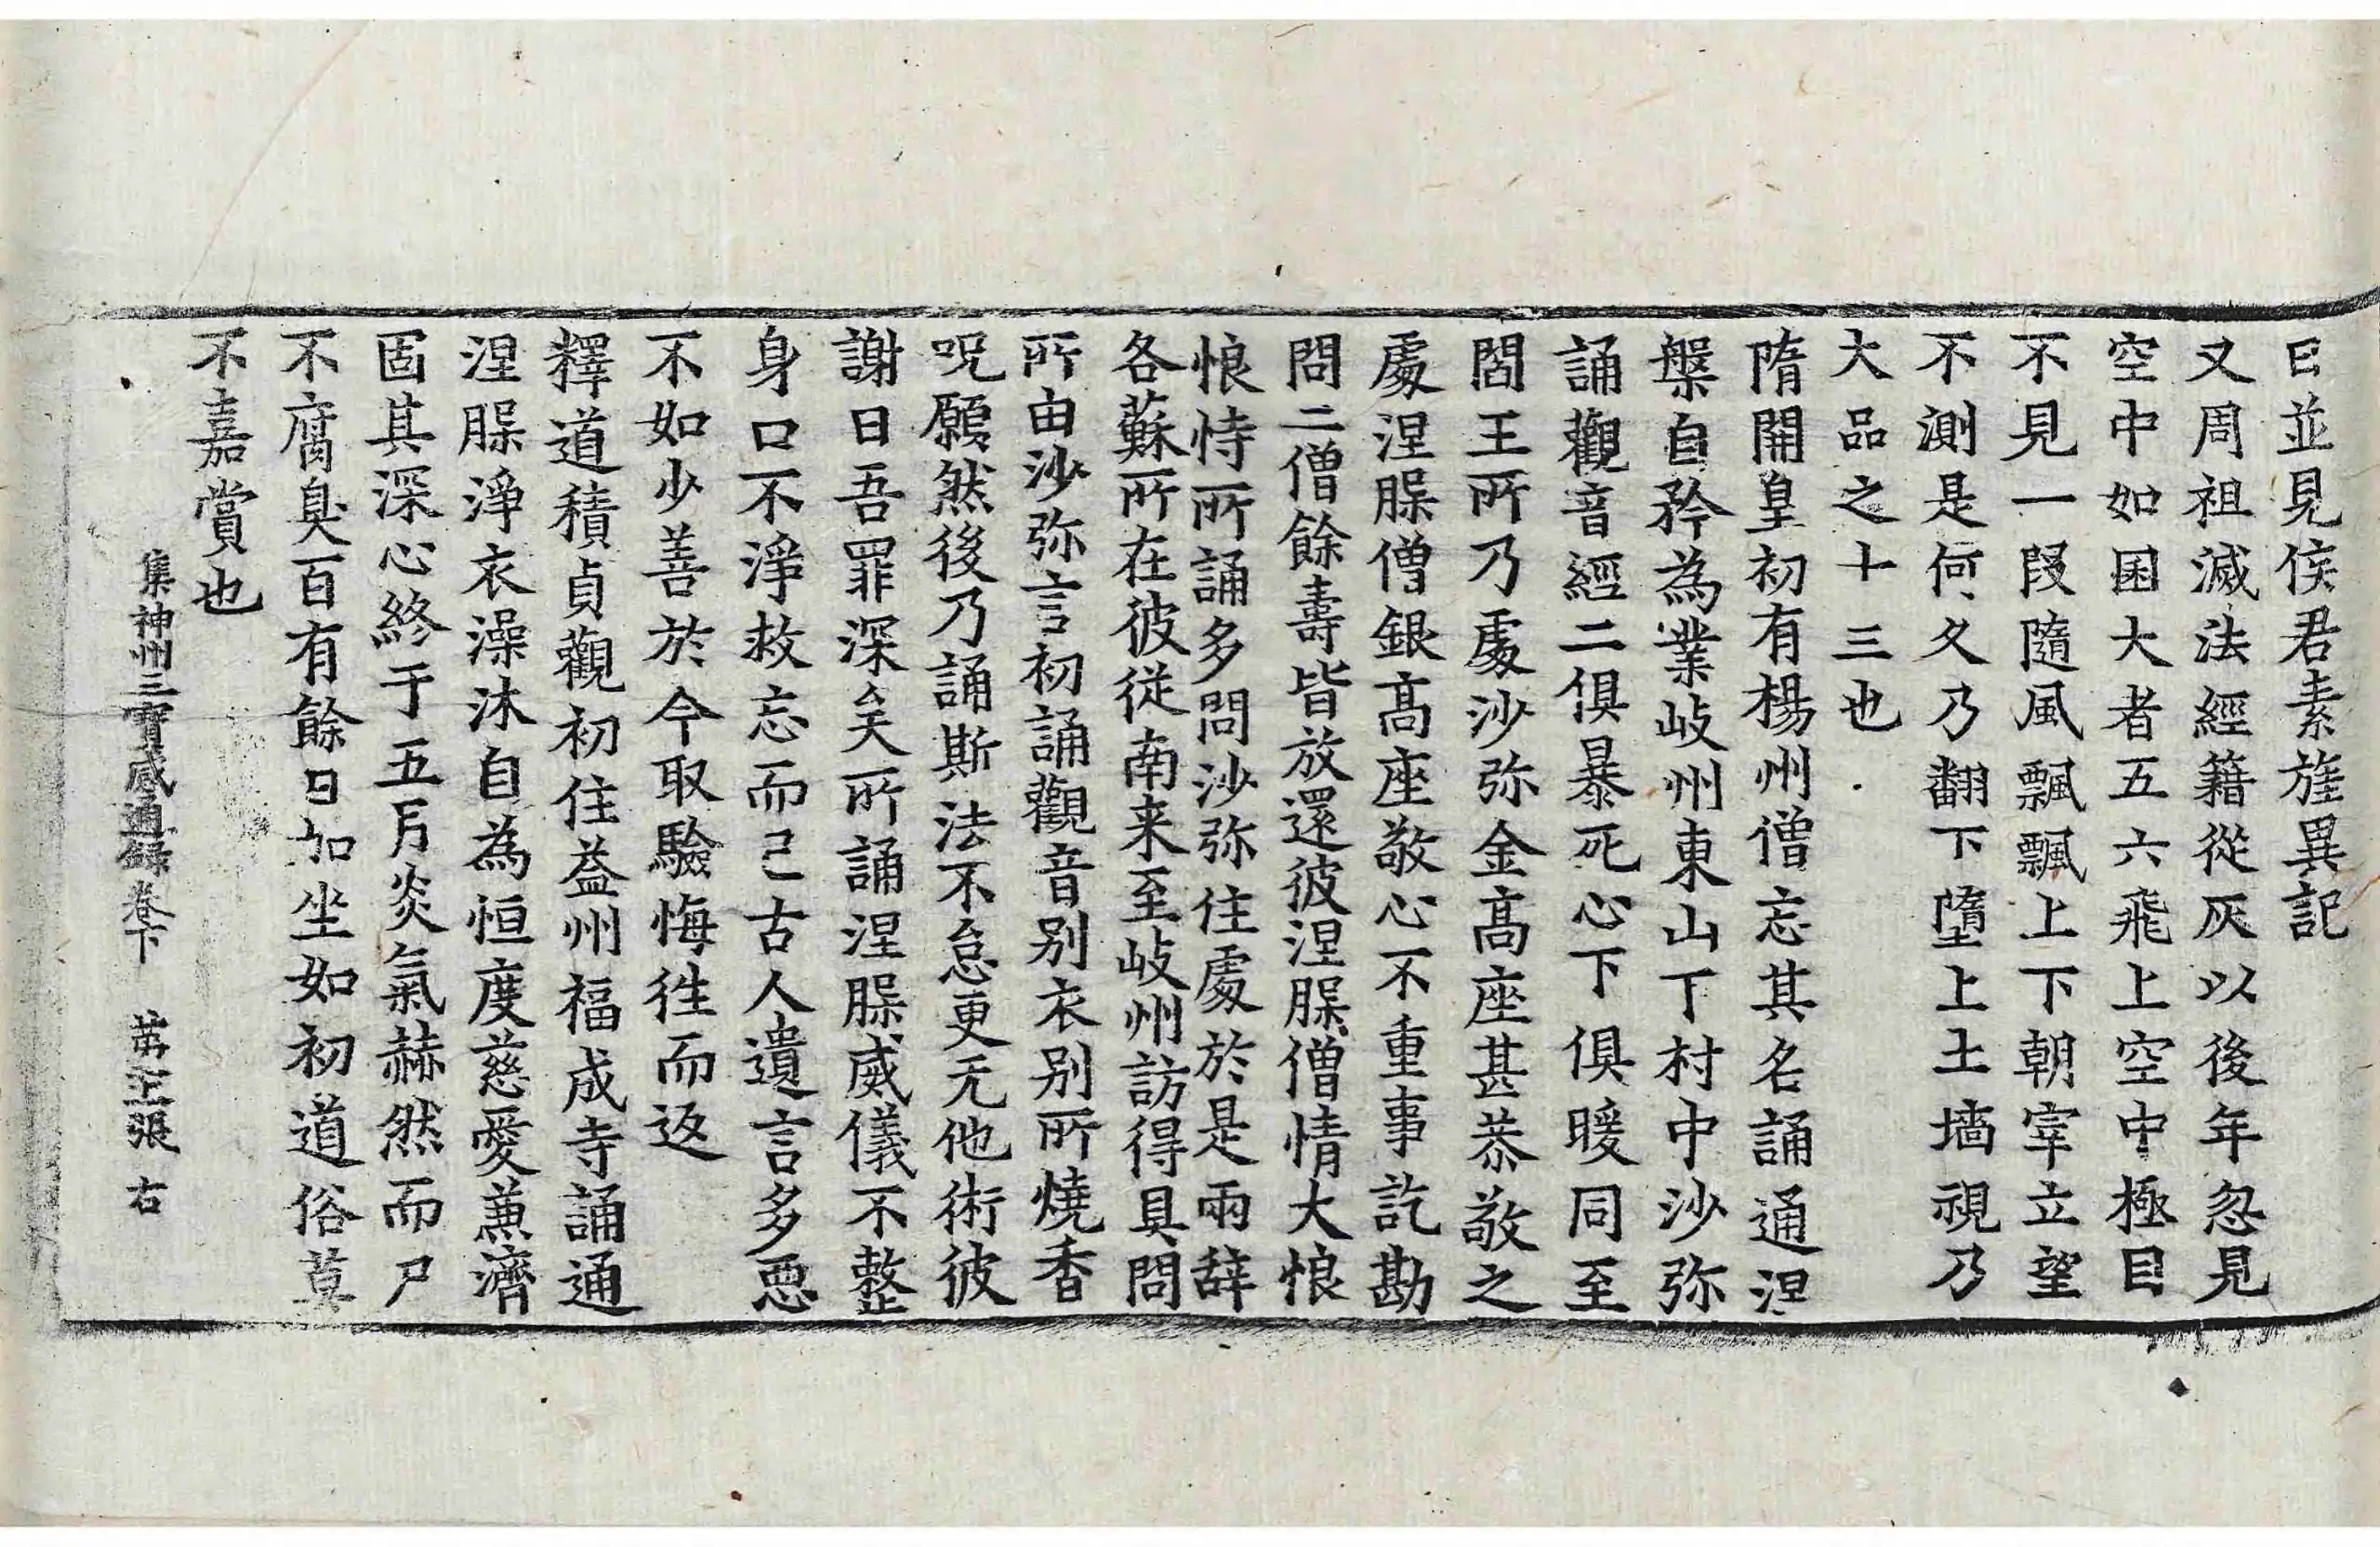 曰並見侯君素旌異記
又周祖滅法經籍從灰以後年忽見
空中如囷大者五六飛上空中極目
不見一段隨風飄飄上下朝宰立望
不測是何久乃翻下墮上土墻視乃
大品之十三也
隋開皇初有楊州僧忘其名誦通涅
槃自矜為業岐州東山丁村中沙弥
誦觀音經二俱暴死心下俱暖同至
閻王所乃處沙弥金髙座甚恭敬之
處涅槃僧銀髙座敬心不重事訖勘
問二僧餘壽皆放還彼涅槃僧情大恨
恨恃所誦多問沙弥住處於是兩辞
各蘇所在彼從南来至岐州訪得具問
所由沙弥言初誦觀音别衣别所燒香
呪願然後乃誦斯法不怠更无他術彼
謝曰吾罪深矣所誦涅槃威儀不整
身口不淨救忘而已古人遺言多惡
不如少善於今取驗悔徃而返
釋道積貞觀初住益州福成寺誦通
涅槃淨衣澡沐自為恒度慈愛兼濟
固其深心終于五月炎氣赫然而尸
不腐臭百有餘日加坐如初道俗莫
不嘉賞也
集神州三寶感通録卷下 苐 張 右